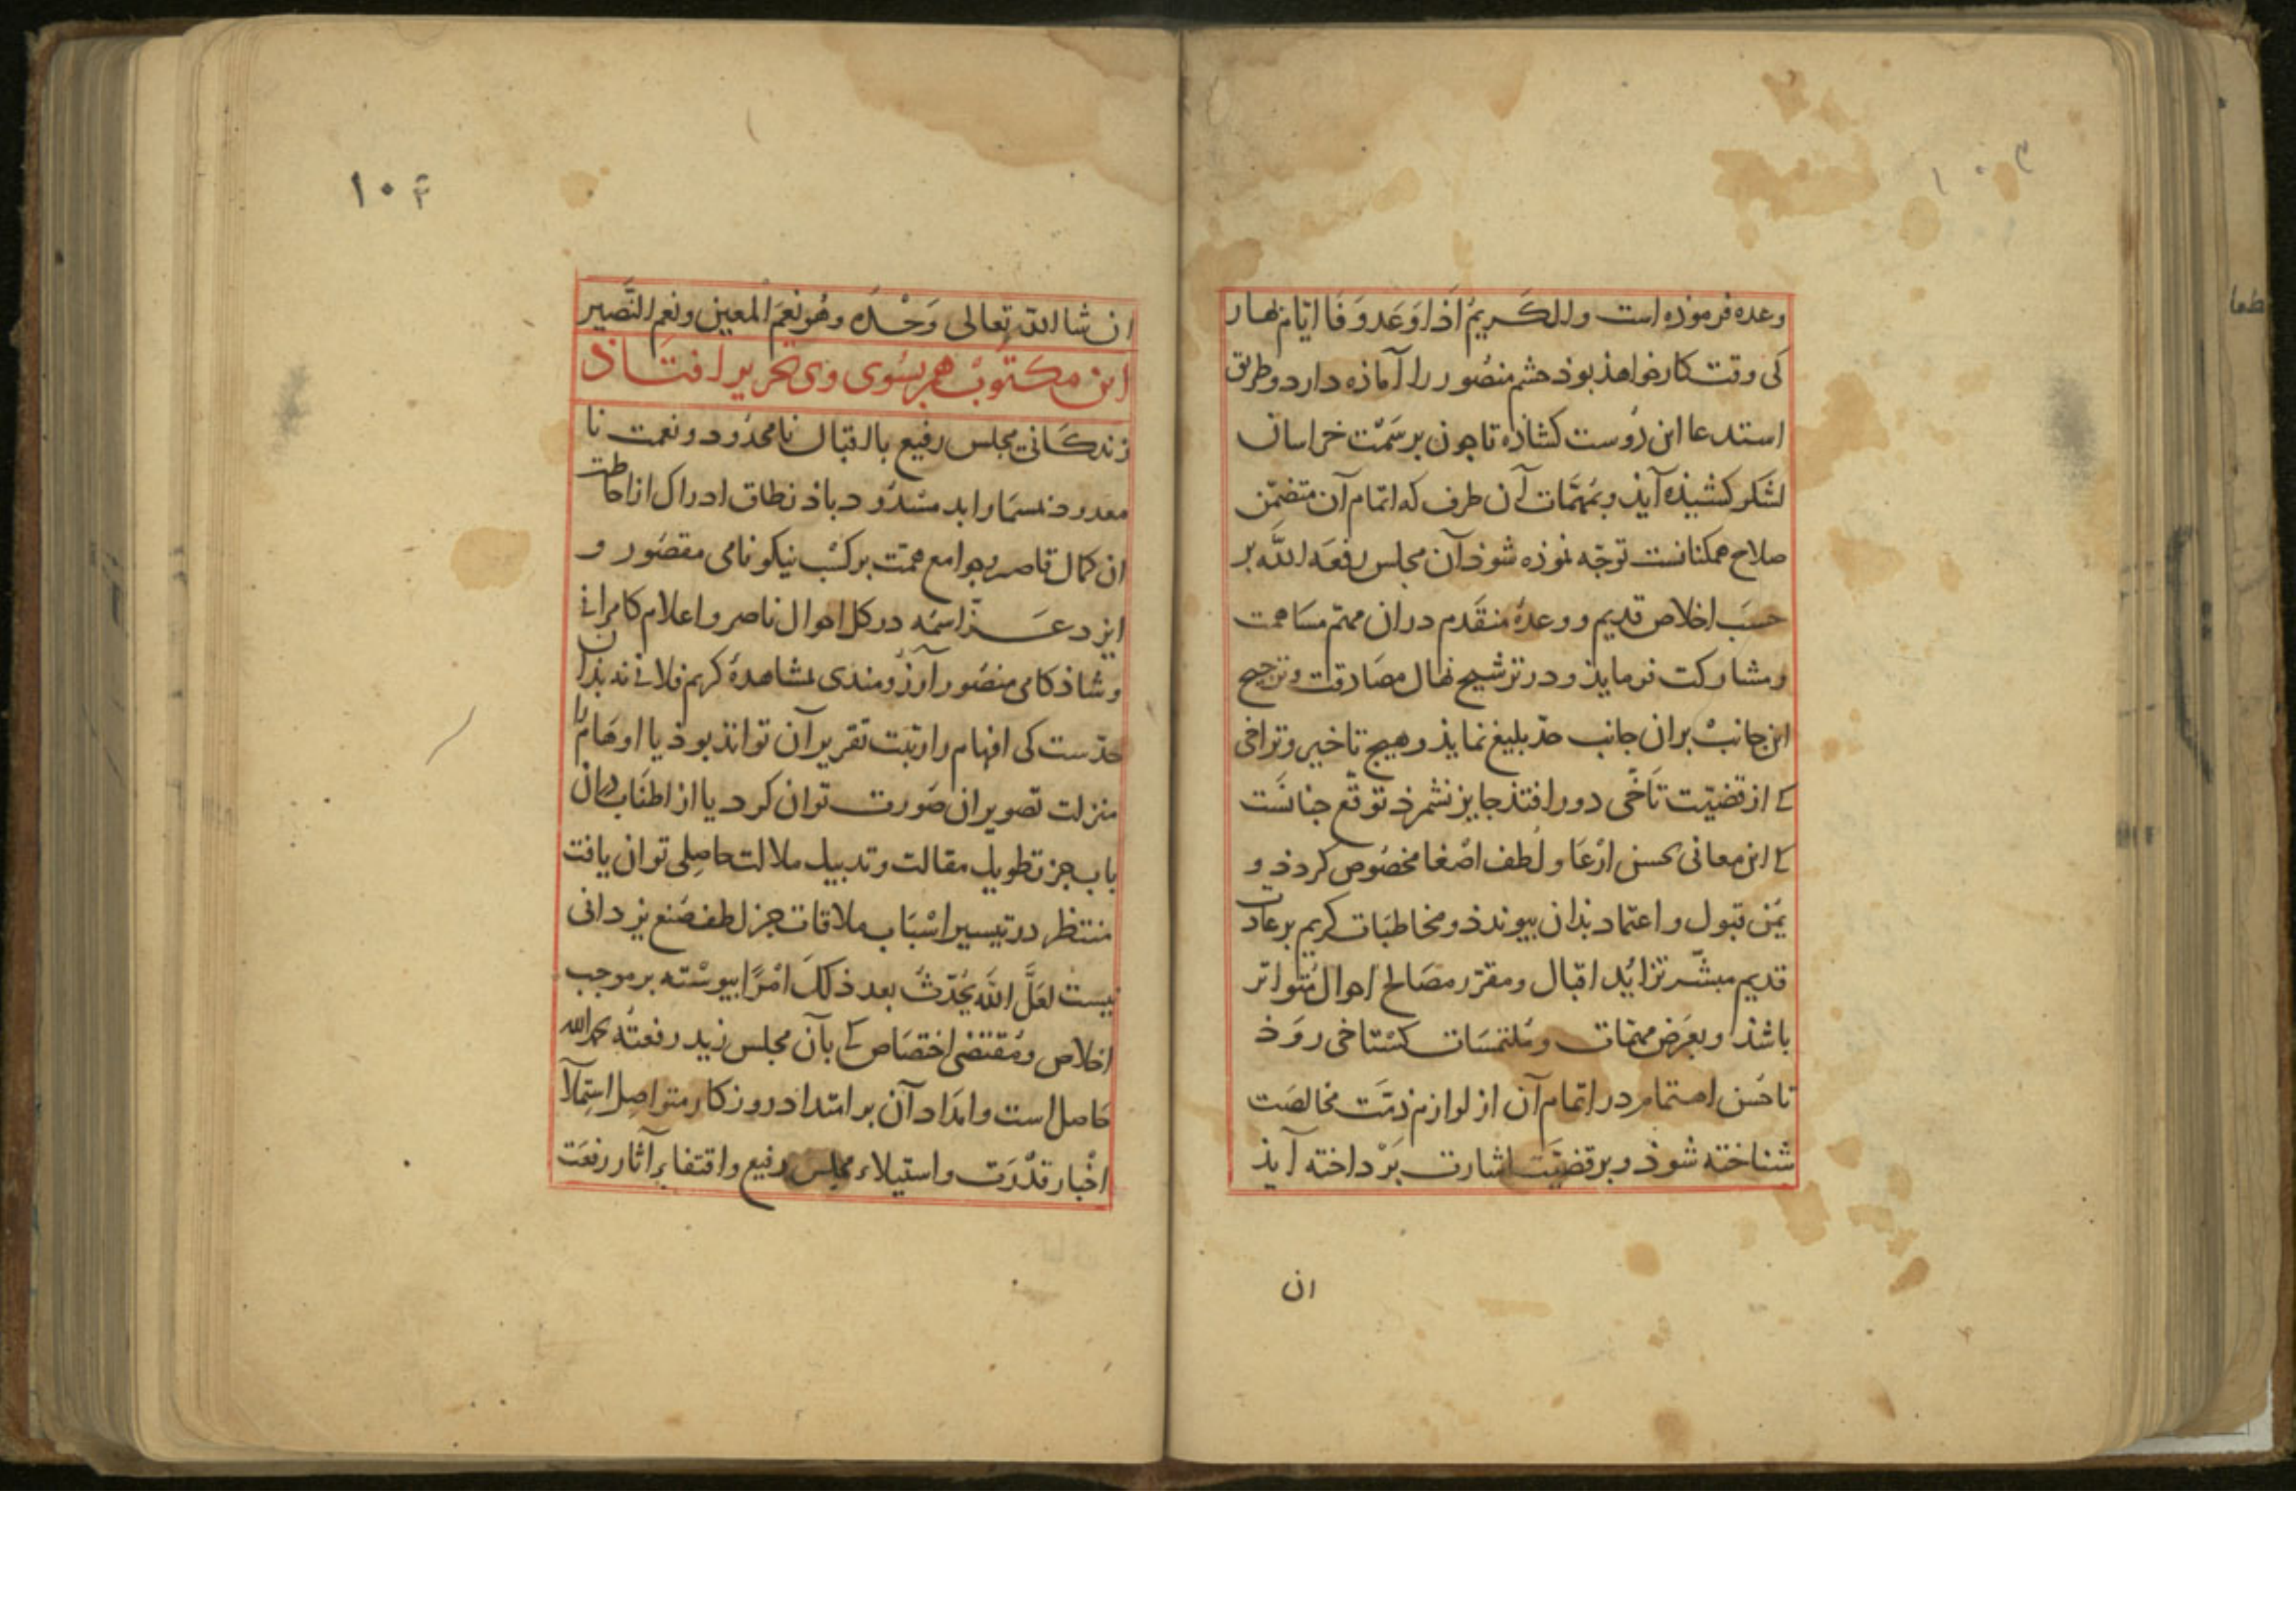 ۱۰۳
وعده فرموذه است وللكَريمُ اذا وَعَد وَفَا ايّام بهار
كى وقت كار خواهذ بوذ حشم منصُور را آماذه دارد و طريق
استدعا اين دُوست كشاذه تا جون بر سَمْت خراسان
لشكر كشيذه آيذ و بمُهمَّات آن طرف كه اتمام آن متضمّن
صلاح همكنانست توجّه نموذه شوذ آن مجلس رفعَه اللّه بر
حسَب اخلاص قديم و وعدهٔ متقَدم در ان مهم مسَاهمت
و مشاركت فرمايذ و در ترشيح نهال مصَادقت و ترجيح
اين جانبْ بران جانب حدّ بليغ نمايذ و هيج تاخير و تراخى
كے از قضيّت تاَخّى دور افتذ جايز نشمرذ توقّع جنانسَت
كے اين معانى بحسن ارْعَا و لُطف اصْغا مخصُوص كردذ و
يمُن قبول و اعتماد بذان بيوندذ و مخاطبَات كريم بر عادت
قديم مبشّر تزايُد اقبال و مقرّر مصَالح احوال مُتواتر
باشذ و بعَرَض مهمّات و مُلتمسَات كسْتاخى روَذ
تا حُسن اهتمام در اتمام آن از لوازم ذمّت مخالصَت
شناخته شوذ و بر قضيَت اشارت بَرْداخته آيذ
ان
۱۰۴
ان شا اللّه تعالى وَحْدَه وهُو نعِمَ المعين ونعم النَّصير
اين مكتوبْ هم بسُوى وى تحرير افتاذ
زندكانى مجلس رفيع با اقبال نامحدُود و نعمت نا
معدود بمسمَار ابد مسْدُود باذ نطاق ادراك از احاطت
ان كمال قاصر و جوامع همّت بر كسْب نيكو نامى مقصُور و
ايزد عَزّ اسمَه در كل احوال ناصر و اعلام كامرانى
و شاذكامى منصُور آرزُومندى بمشاهدهٔ كريم فلانى نه بذان
حدّست كى افهام را رتبَت تقرير آن تواند بوذ يا اوهَام را
منزلت تصوير ان صَورت توان كرد يا از اطنَاب دران
باب جز تطويل مقالت و تدبيل ملالت حاصِلى توان يافت
منتظر در تيسير اسْبَاب ملاقات جز لطف صُنع يزدانى
نيست لعَلَّ اللّه يُحْدثُ بعد ذلكَ امْرًا بيوسْته بر موجب
اخلاص و مُقتضى اختصَاص كے بآن مجلس زيد رفعتُه بحمد اللّه
حَاصل است و امدَاد آن بر امتداد روزكار متواصِل استملآ
اخْبار قدْرَت و استيلاء مجلس رفيع و اقتفا بر آثار رفعَت